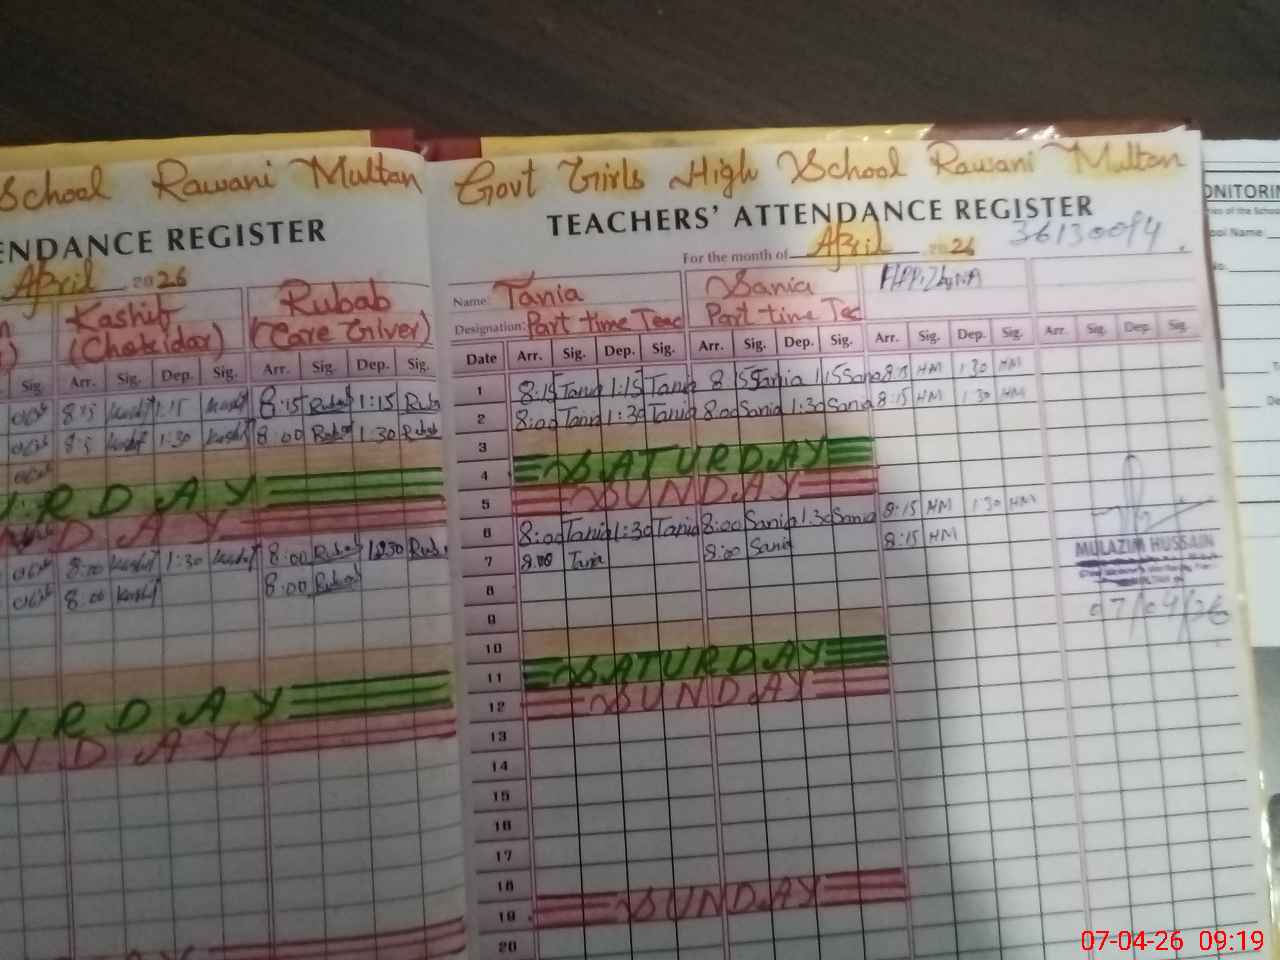 School Rawani Multan
ENDANCE REGISTER
April 2026
Kashif
(Chokidar)
Rubab
(Care Giver)
Sig. Arr. Sig. Dep. Sig. Arr. Sig. Dep. Sig.
8:15 Rubab 1:15 Ruba
8:00 Rubab 1:30 Rubab
RDAY
NDAY
8:00 Kashif 1:30 Kashif 8:00 Rubab 1:30 Rub
8:00 Kashif 8:00 Rubab
RDAY
NDAY
Govt Girls High School Rawani Multan
TEACHERS' ATTENDANCE REGISTER
For the month of April 2026
Name: Tania Sania
Designation: Part time Teac Part time Tec
Date Arr. Sig. Dep. Sig. Arr. Sig. Dep. Sig. Arr. Sig. Dep. Sig. Arr. Sig. Dep. Sig.
1 8:15 Tania 1:15 Tania 8:15 Sania 1:15 Sana 8:15 HM 1:30 HM
2 8:00 Tania 1:30 Tania 8:00 Sania 1:30 Sania 8:15 HM 1:30 HM
3
4 SATURDAY
5 SUNDAY
6 8:00 Tania 1:30 Tania 8:00 Sania 1:30 Sania 8:15 HM 1:30 HM
7 8:00 Tania 8:00 Sania 8:15 HM
8
9
10
11 SATURDAY
12 SUNDAY
13
14
15
16
17
18
19 SUNDAY
20
MULAZIM HUSSAIN
07/04/26
ONITORIN
ool Name:
07-04-26 09:19